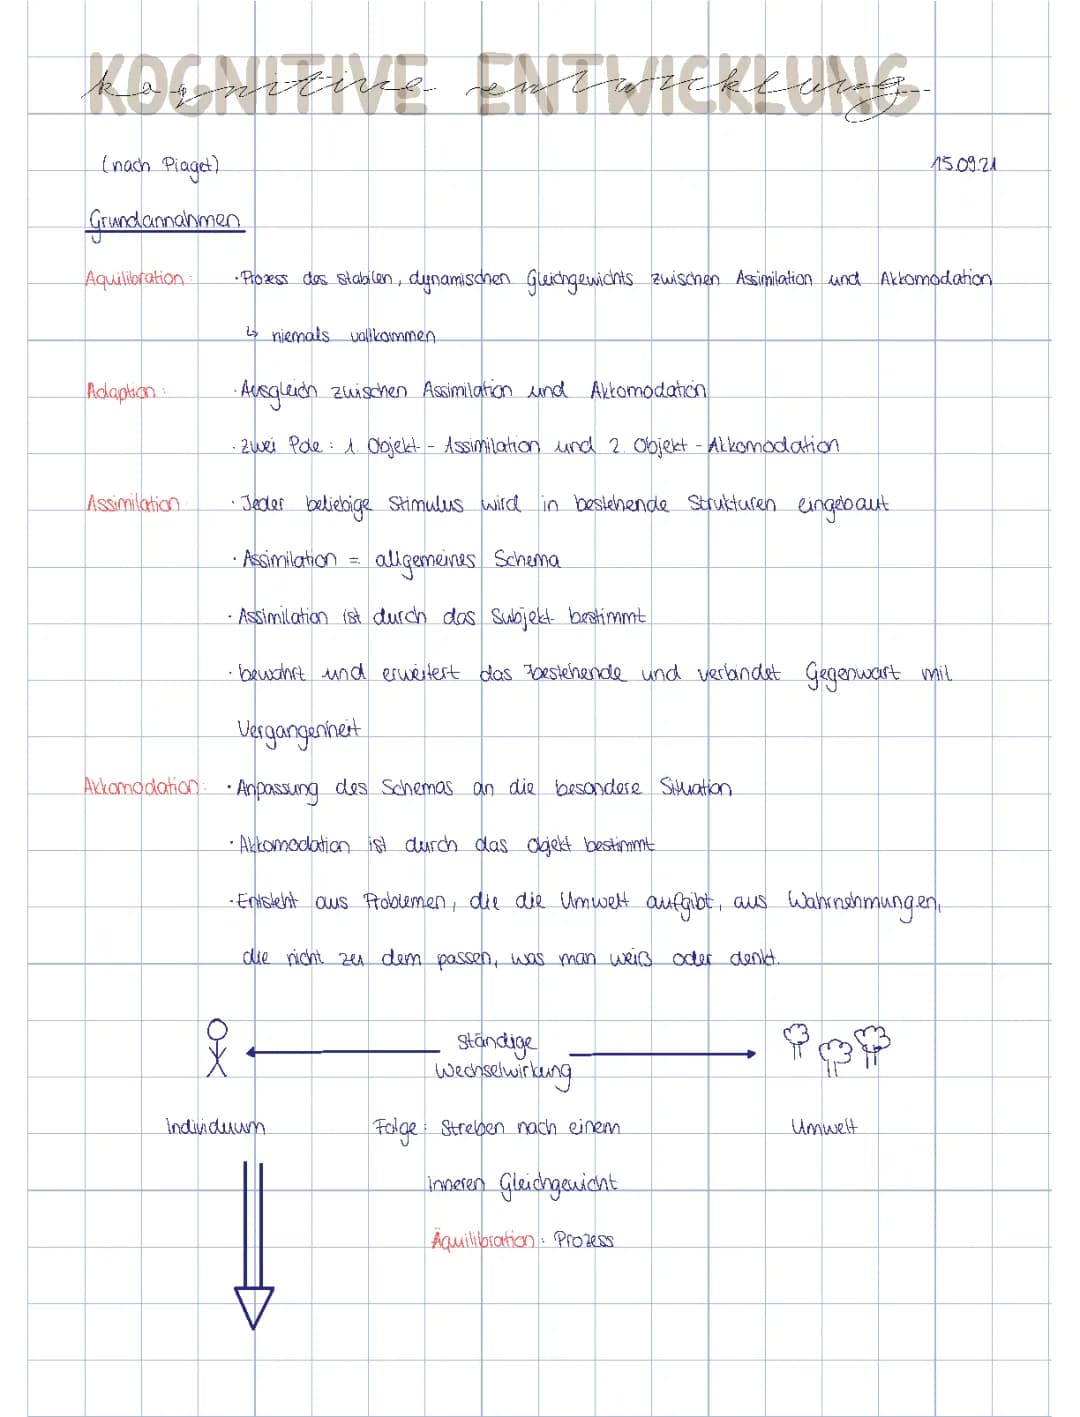 KOGNITIVE ENTWICKLUNG
kognitive entwicklung
(nach Piaget) 15.09.21
Grundannahmen
Äquilibration: · Prozess des stabilen, dynamischen Gleichgewichts zwischen Assimilation und Akkomodation
↳ niemals vollkommen
Adaption: · Ausgleich zwischen Assimilation und Akkomodation
· zwei Pole: 1. Objekt - Assimilation und 2. Objekt - Akkomodation
Assimilation: · Jeder beliebige Stimulus wird in bestehende Strukturen eingebaut
· Assimilation = allgemeines Schema
· Assimilation ist durch das Subjekt bestimmt
· bewahrt und erweitert das bestehende und verbindet Gegenwart mit
Vergangenheit
Akkomodation: · Anpassung des Schemas an die besondere Situation
· Akkomodation ist durch das Objekt bestimmt
· Entsteht aus Problemen, die die Umwelt aufgibt, aus Wahrnehmungen,
die nicht zu dem passen, was man weiß oder denkt.
Ständige
Wechselwirkung
Individuum Folge: Streben nach einem Umwelt
inneren Gleichgewicht
Äquilibration: Prozess